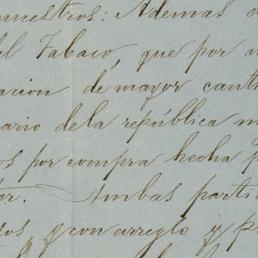 nuestros: Ademas d
el Tabaco, que por n
acion de mayor canti
ario dela república m
os por compra hecha p
ar. Ambas parti
dos y con arreglo y p